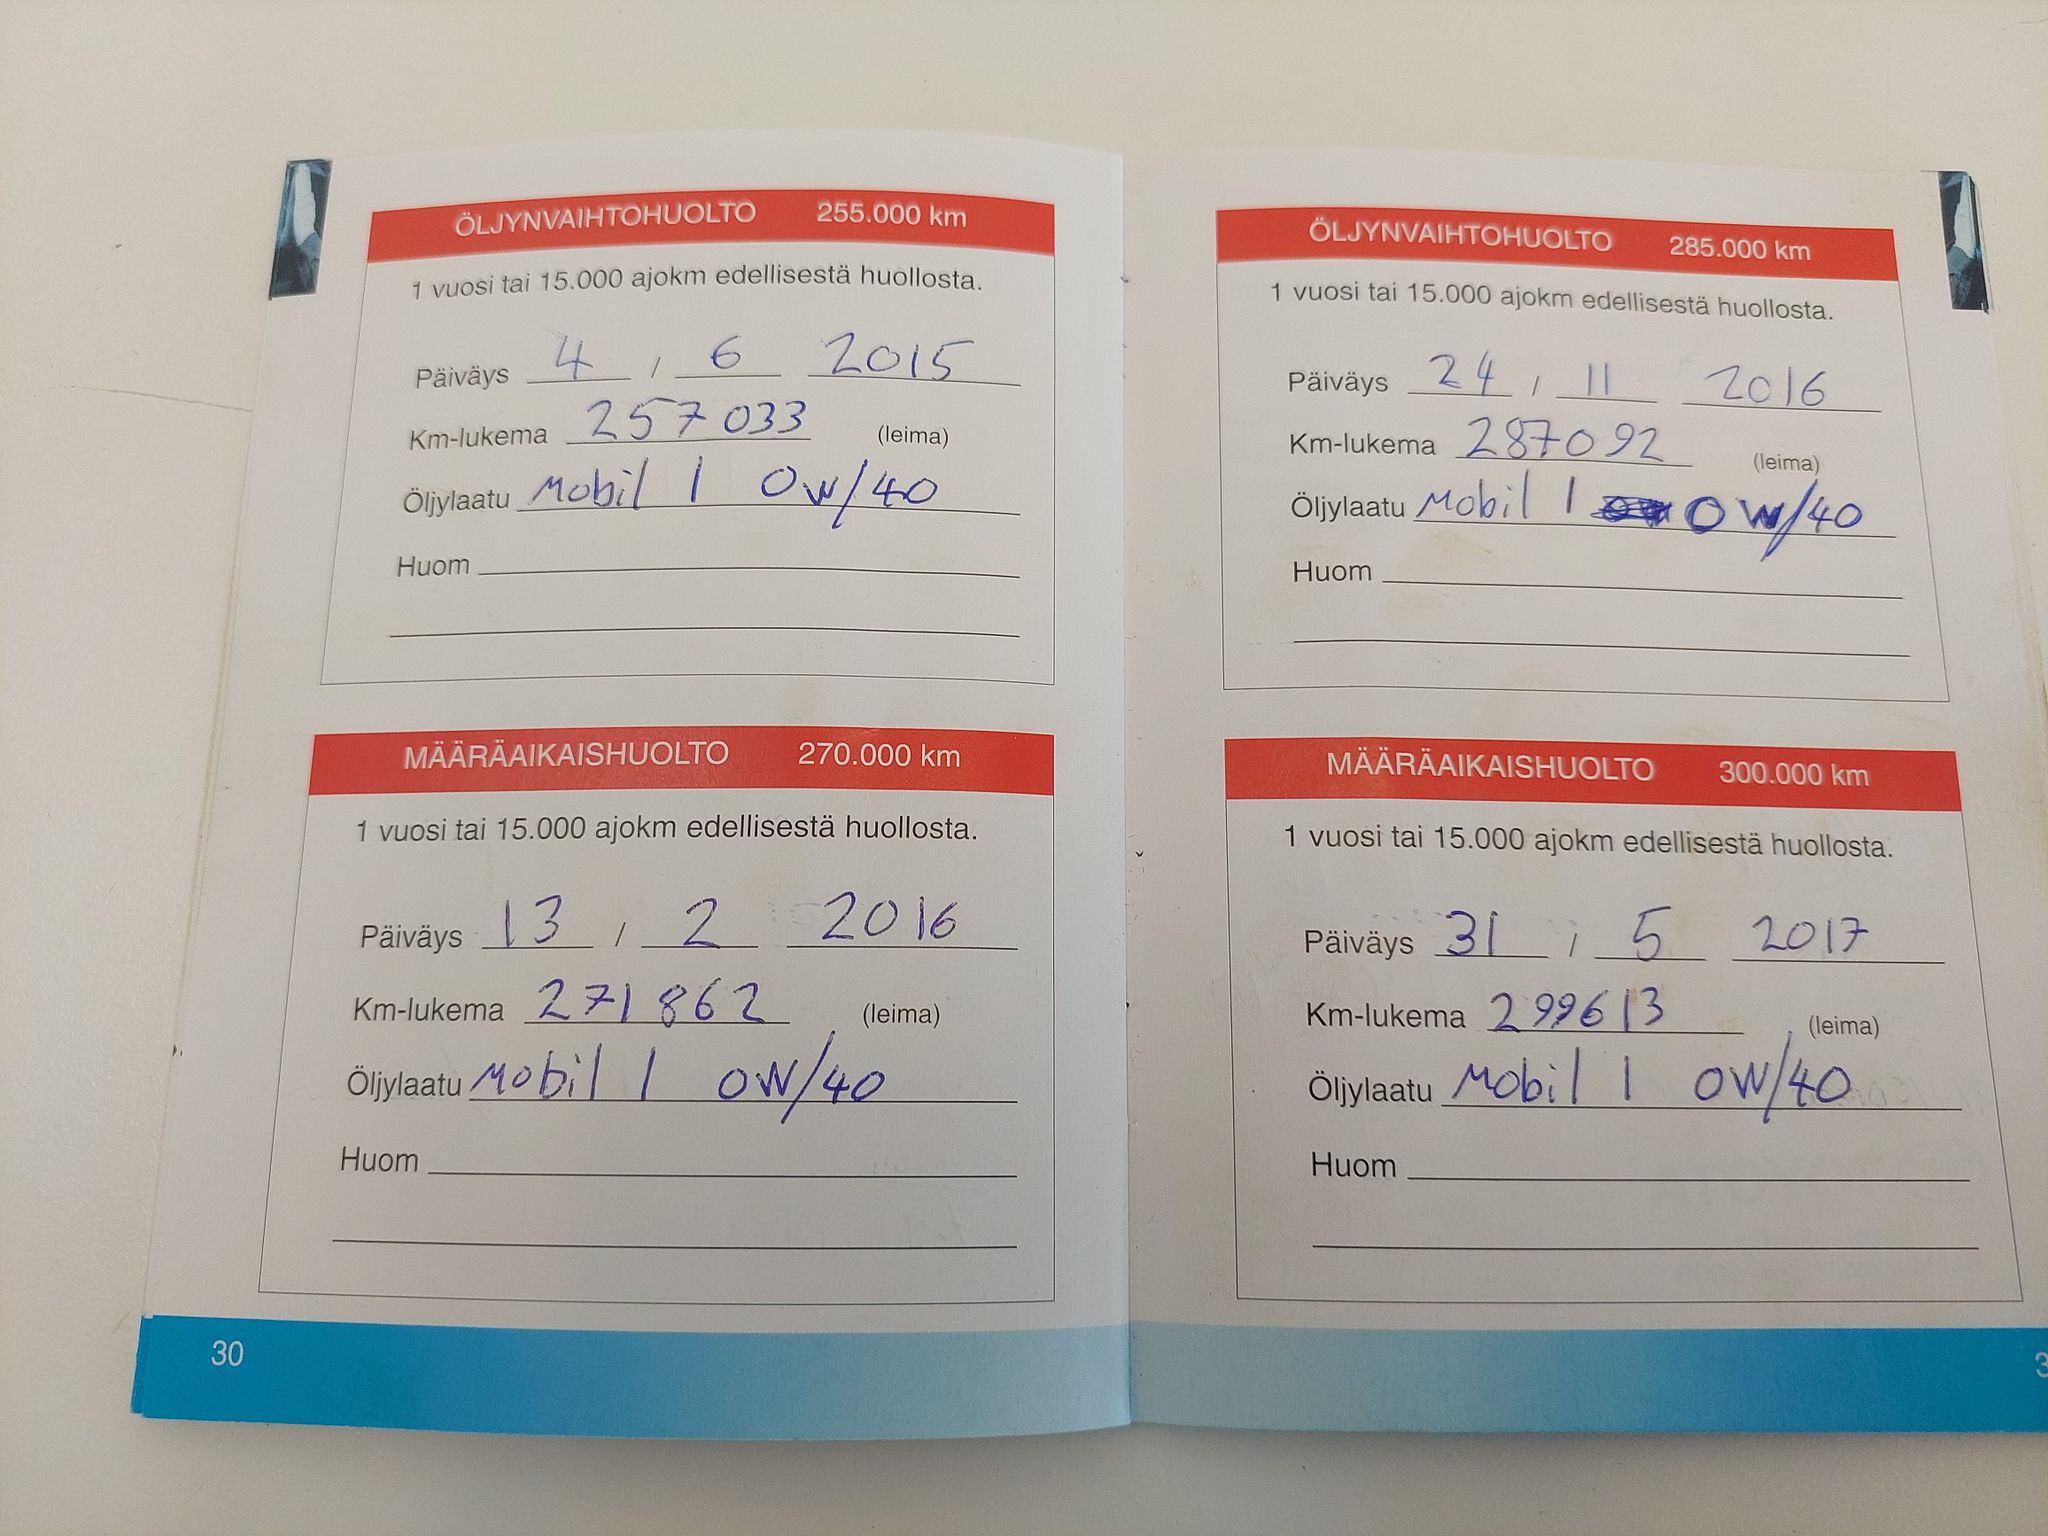 ÖLJYNVAIHTOHUOLTO 255.000 km
1 vuosi tai 15.000 ajokm edellisestä huollosta.
Päiväys 4 / 6 2015
Km-lukema 257 033 (leima)
Öljylaatu Mobil 1 0W/40
Huom
MÄÄRÄAIKAISHUOLTO 270.000 km
1 vuosi tai 15.000 ajokm edellisestä huollosta.
Päiväys 13 / 2 2016
Km-lukema 271 862 (leima)
Öljylaatu Mobil 1 0W/40
Huom
30
ÖLJYNVAIHTOHUOLTO 285.000 km
1 vuosi tai 15.000 ajokm edellisestä huollosta.
Päiväys 24 / 11 2016
Km-lukema 287092 (leima)
Öljylaatu Mobil 1 0W/40
Huom
MÄÄRÄAIKAISHUOLTO 300.000 km
1 vuosi tai 15.000 ajokm edellisestä huollosta.
Päiväys 31 / 5 2017
Km-lukema 299613 (leima)
Öljylaatu Mobil 1 0W/40
Huom